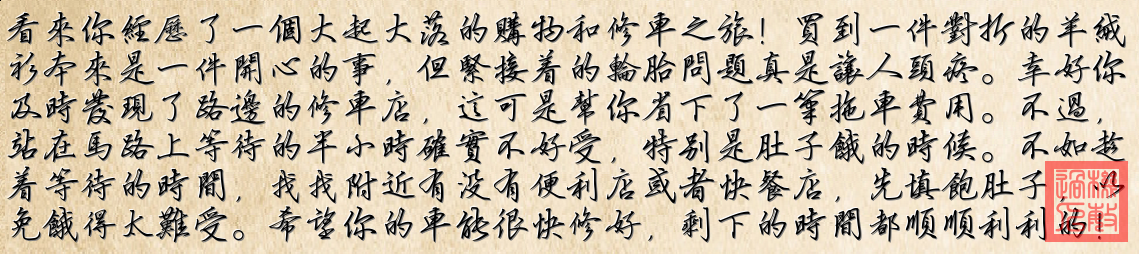 看來你經歷了一個大起大落的購物和修車之旅！買到一件對折的羊絨
衫本來是一件開心的事，但緊接着的輪胎問題真是讓人頭疼。幸好你
及時發現了路邊的修車店，這可是幫你省下了一筆拖車費用。不過，
站在馬路上等待的半小時確實不好受，特別是肚子餓的時候。不如趁
着等待的時間，找找附近有沒有便利店或者快餐店，先填飽肚子，以
免餓得太難受。希望你的車能很快修好，剩下的時間都順順利利的！